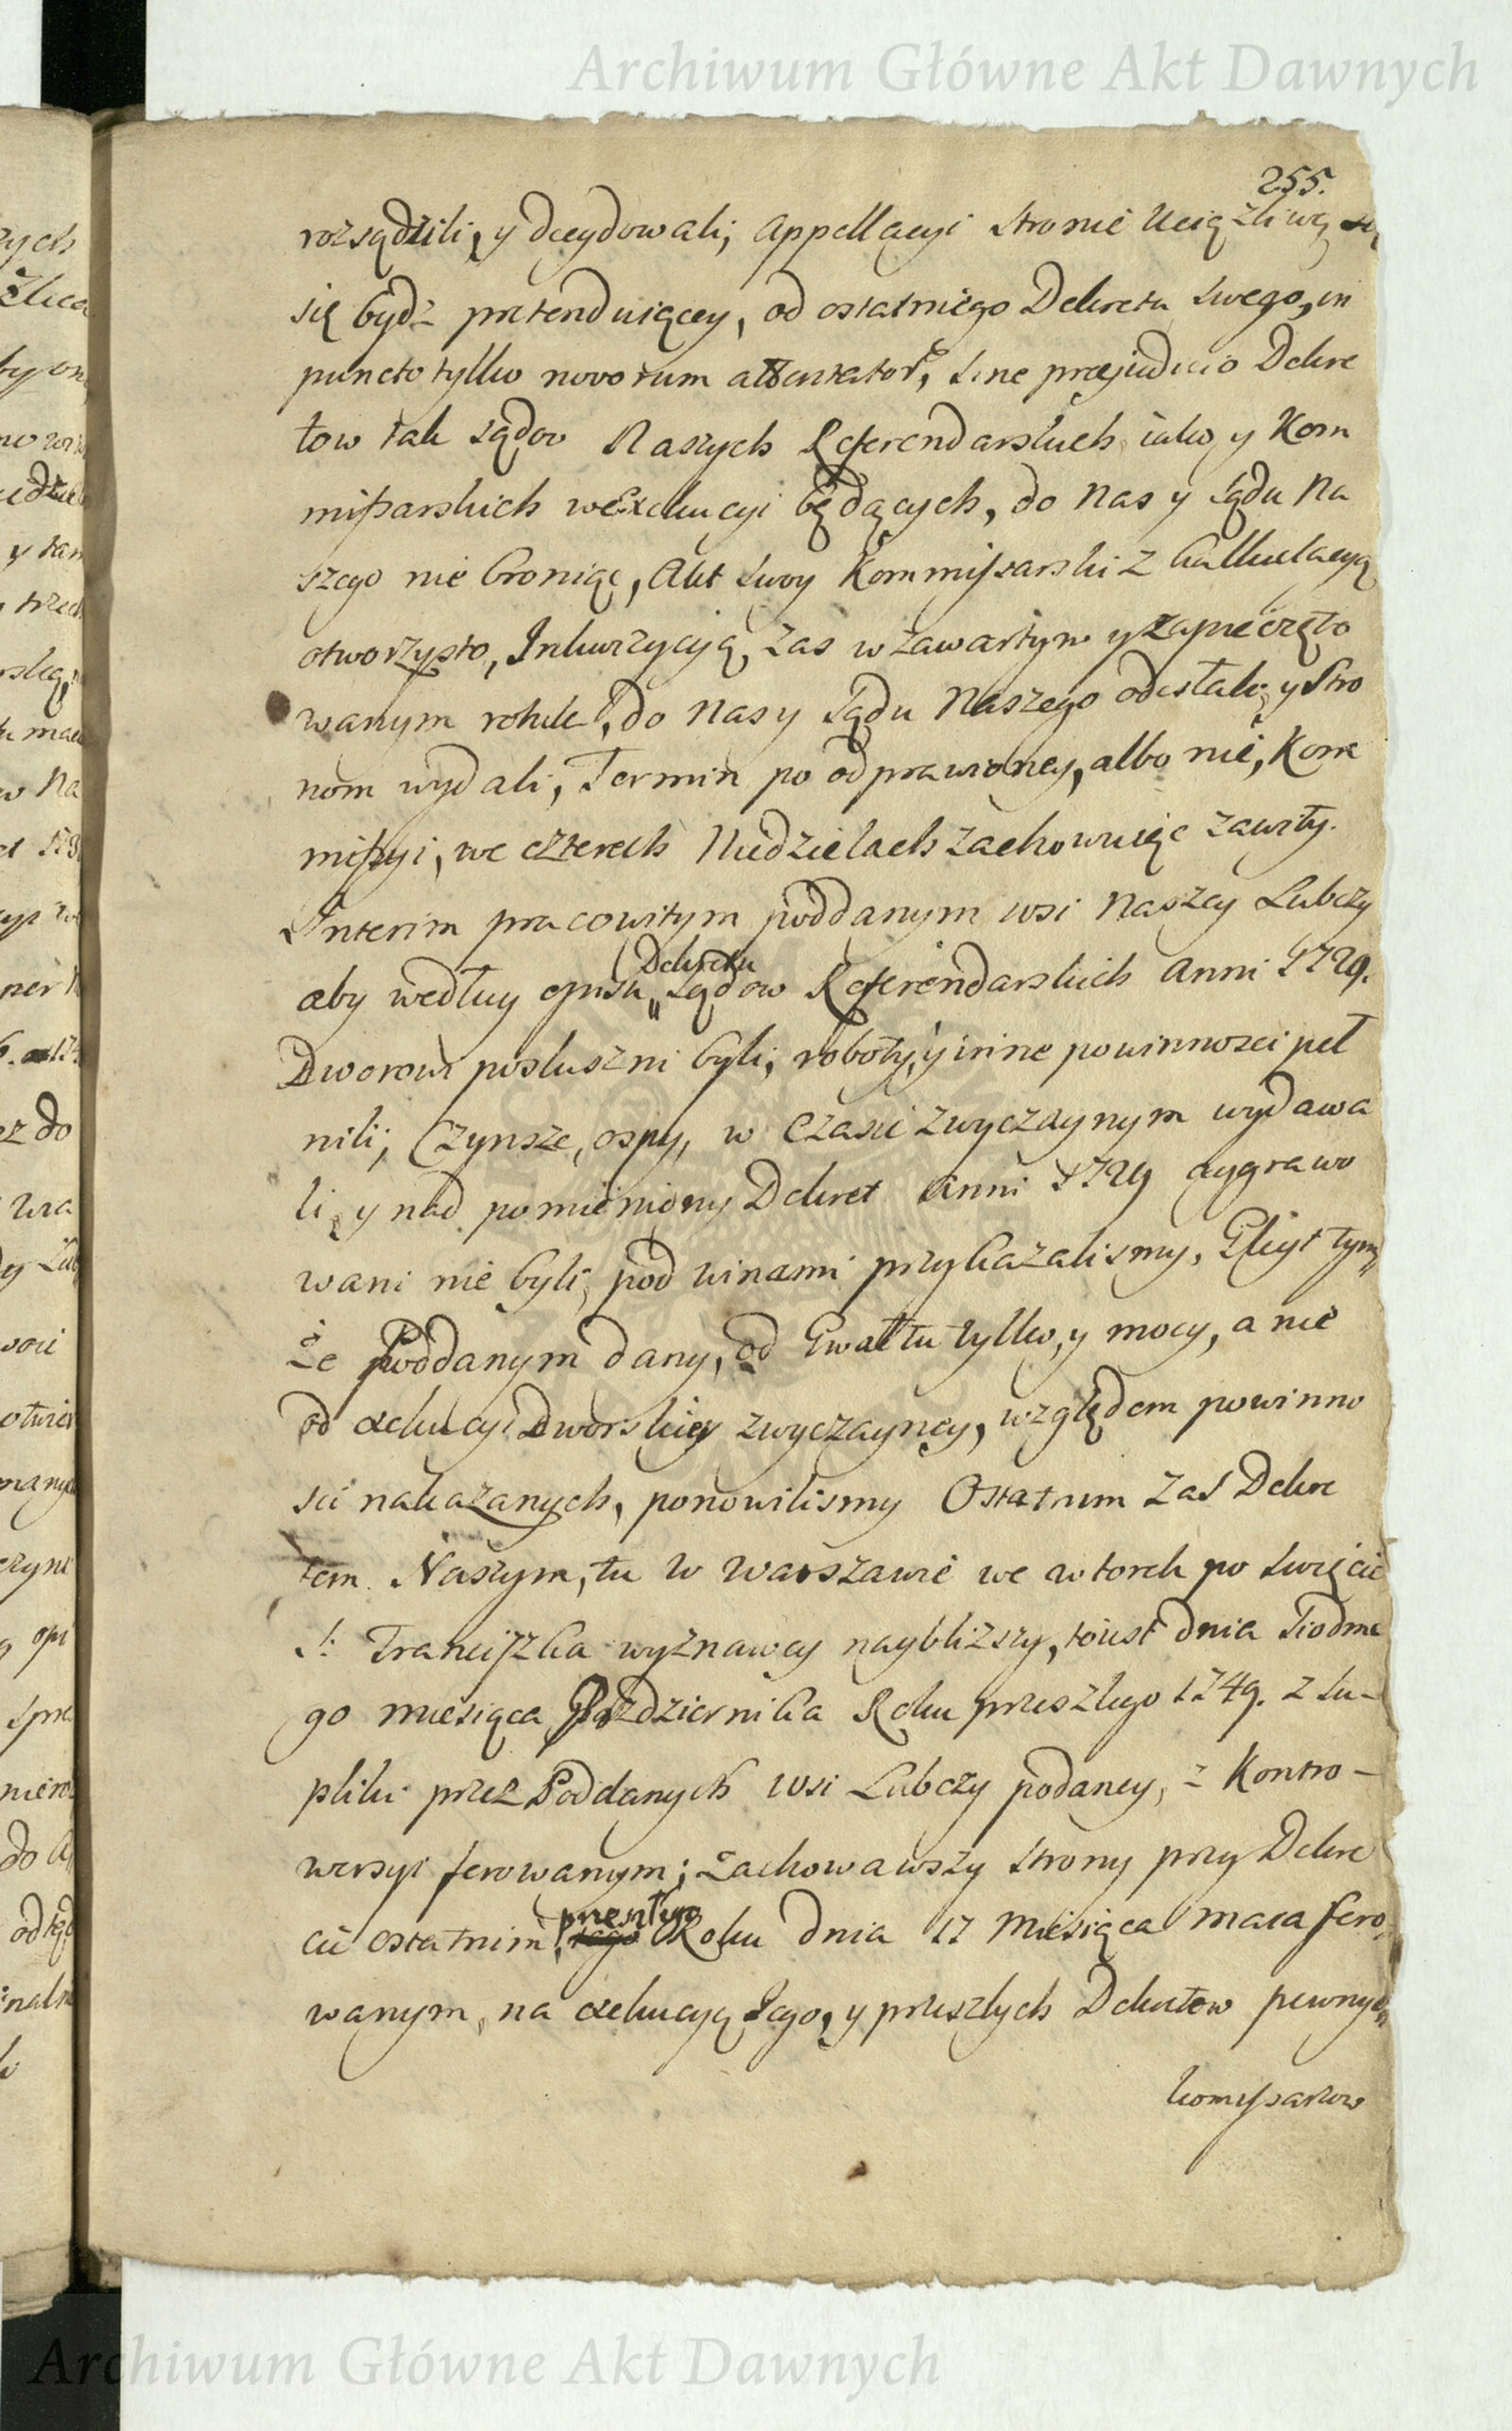 Archiwum Główne Akt Dawnych
255.
rozsądzili, y decydowali, Appellacyi stronie Uciążliwą
się bydź pretenduiącey, od ostatniego Dekretu swego, in
puncto tylko novorum attentator, sine præjudicio Dekre
tow tak sądow Naszych Referendarskich iako y Kom
missarskich w Exekucyi będących, do Nas y sądu Na
szego nie broniąc, Akt swoy Kommissarski z kalkulacyą
otworzysto, Inkwizycyią, zas w zawartym y zapieczęto
wanym rotule, do Nas y sądu Naszego odesłali, y Stro
nom wydali, Termin po odprawioney, albo nie, Kom
missyi, we czterech Niedzielach zachowuiąc zawity.
Interim pracowitym poddanym wsi Naszey Lubczy
Dekretu
aby według opisu sądow Referendarskich Anni 1729.
Dworowi posłuszni byli, roboty, y inne powinnosci peł
nili, Czynsze, ospy, w Czasie zwyczaynym wydawa
li, y nad pomieniony Dekret Anni 1729 aggrawo
wani nie byli, pod winami przykazalismy, Gleyt tym
że Poddanym dany, od Gwałtu tylko, y mocy, a nie
od exekucyi Dworskiey zwyczayney, względem powinno
sci nakazanych, ponowilismy Ostatnim zas Dekre
tem Naszym, tu w Warszawie we wtorek po swięcie
S: Franciszka wyznawcy naybliższy, toiest dnia Siodme
go miesiąca Pazdziernika Roku przeszlego 1749. z Su-
pliki przez Poddanych wsi Lubczy podaney, z Kontro-
wersyi ferowanym; zachowawszy strony przy Dekre
przeszłego
cie ostatnim, Roku dnia 17 Miesiąca Maia fero
wanym, na exekucyą Jego, y przeszłych Dekretow pewnych
komissarzow
Archiwum Główne Akt Dawnych